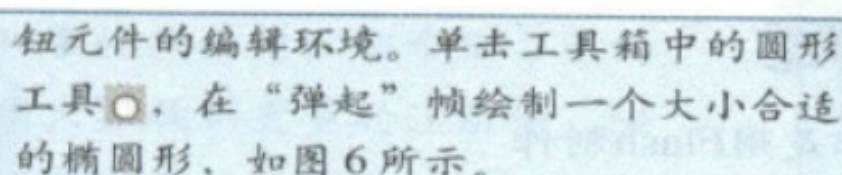 钮元件的编辑环境。单击工具箱中的圆形
工具，在“弹起”帧绘制一个大小合适
的椭圆形，如图6所示。